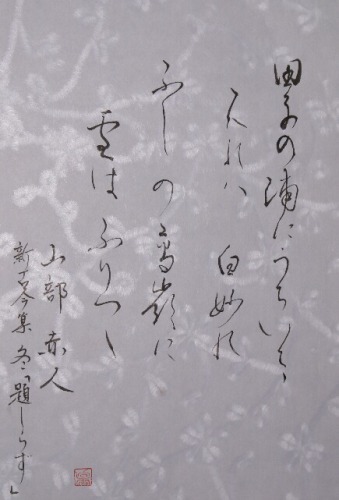 田子の浦にうちいて
みれハ 白妙の
ふしの高嶺に
雪はふりつゝ
山部赤人
新古今集 冬「題しらず」